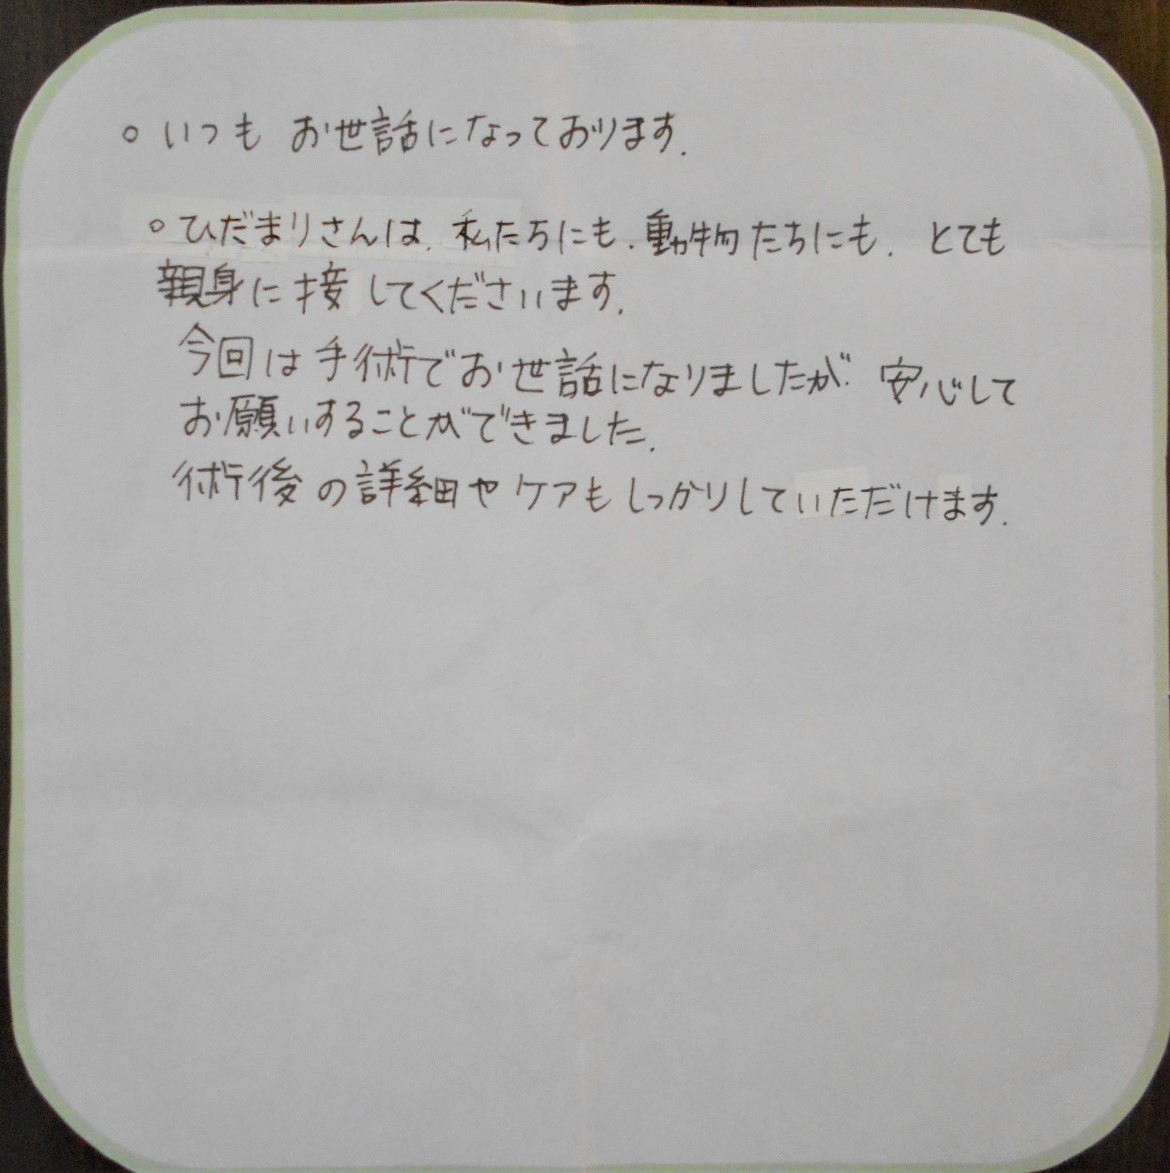 ○ いつも お世話になっております.
○ ひだまりさんは, 私たちにも, 動物たちにも, とても
親身に接してくださいます.
今回は手術でお世話になりましたが, 安心して
お願いすることができました.
術後の詳細やケアもしっかりしていただけます.